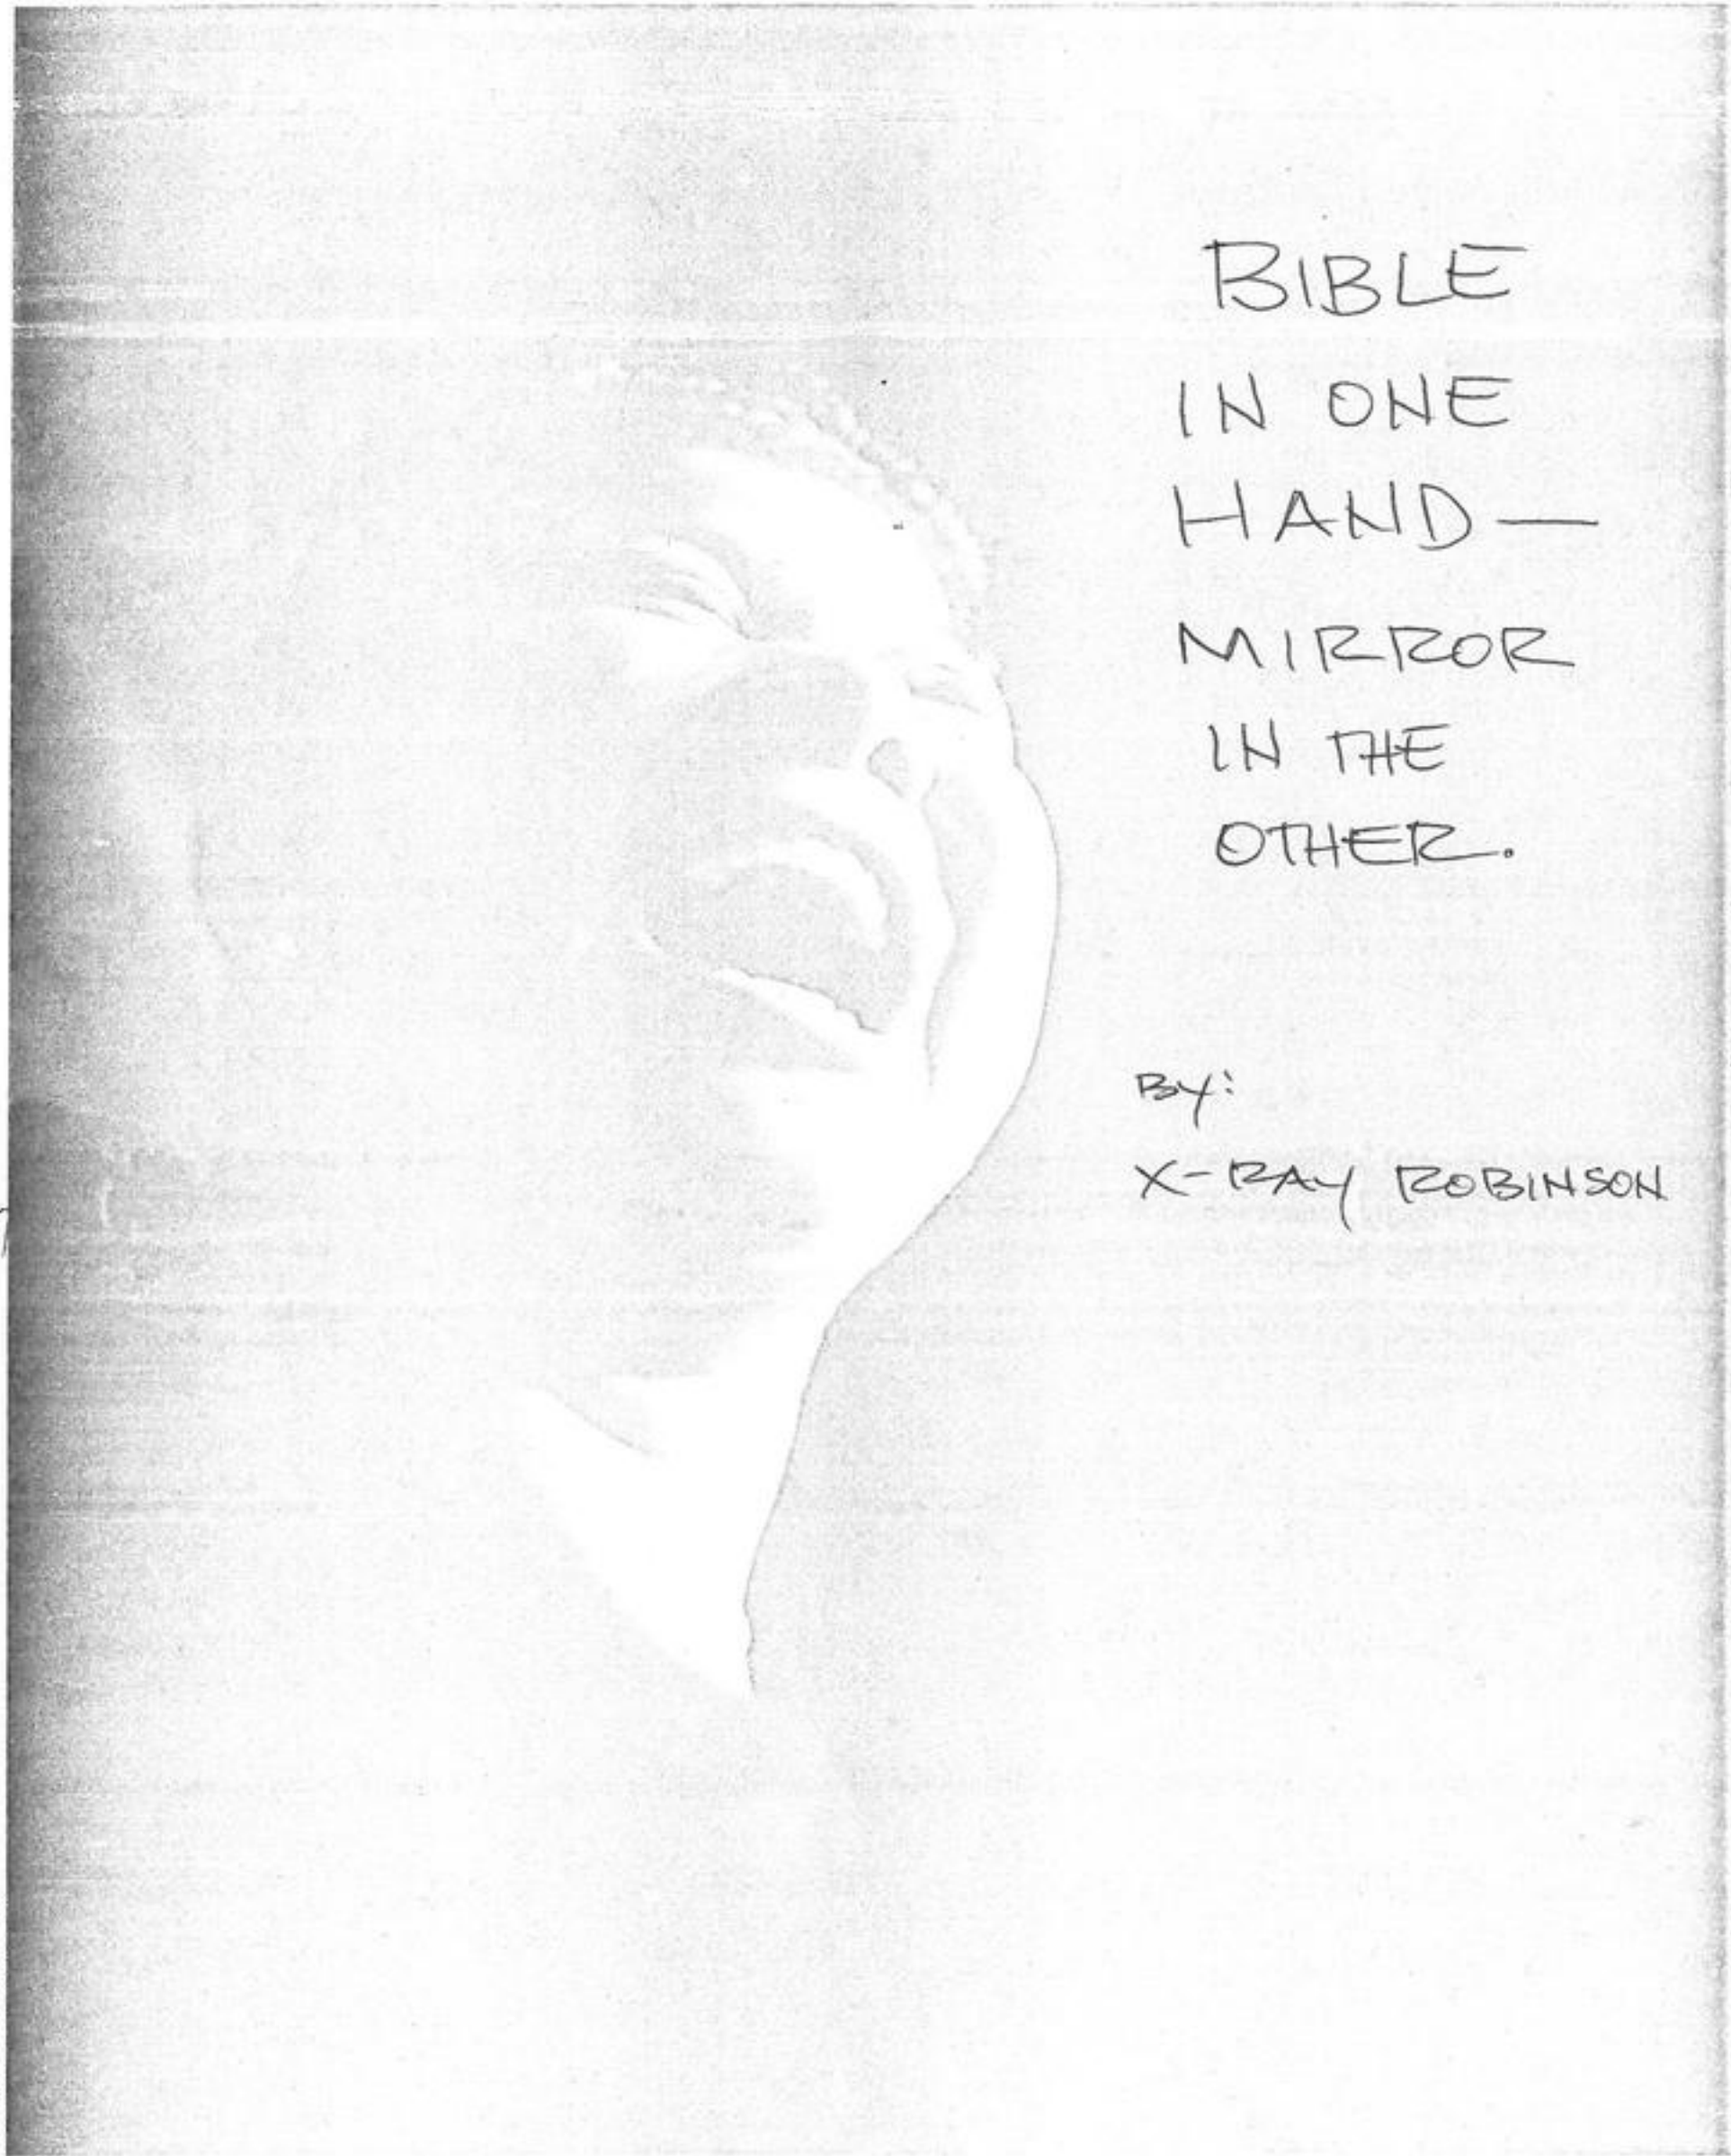 BIBLE
IN ONE
HAND—
MIRROR
IN THE
OTHER.
BY:
X-RAY ROBINSON